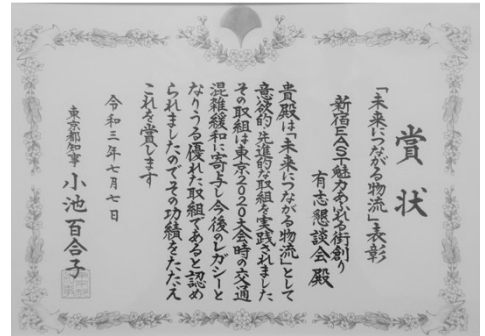 賞状
「未来につながる物流」表彰
新宿EAST魅力あふれる街創り
有志懇談会殿
貴殿は「未来につながる物流」として
意欲的先進的な取組を実践されました
その取組は東京2020大会時の交通
混雑緩和に寄与し今後のレガシーと
なりうる優れた取組であると認め
られましたのでその功績をたたえ
これを賞します
令和三年七月七日
東京都知事 小池百合子